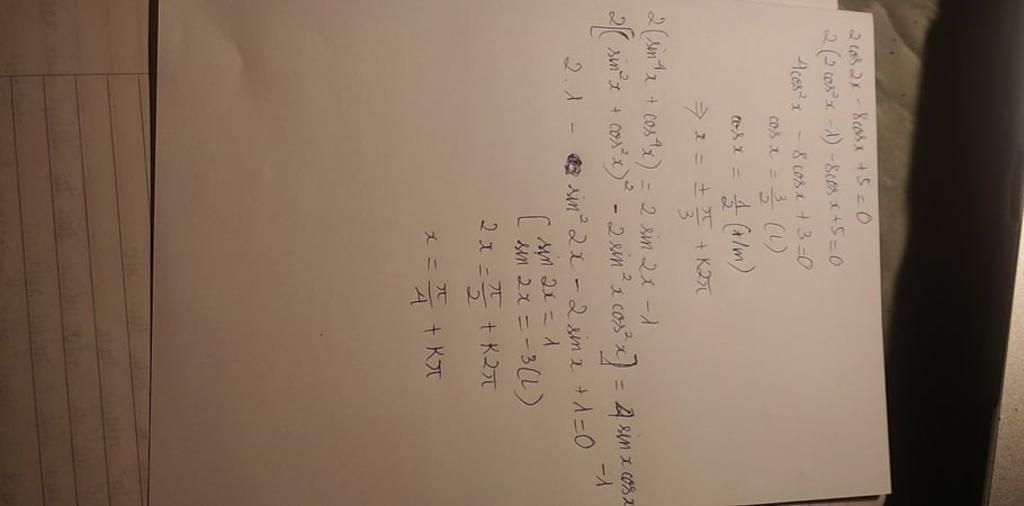 2cos2x - 8cosx + 5 = 0
2(2cos²x - 1) - 8cosx + 5 = 0
4cos²x - 8cosx + 3 = 0
cosx = 3/2 (L)
cosx = 1/2 (t/m)
⇒ x = ± π/3 + K2π
2(sin⁴x + cos⁴x) = 2sin2x - 1
2[(sin²x + cos²x)² - 2sin²xcos²x] = 4sinxcosx - 1
2.1 - sin²2x - 2sinx + 1 = 0
[ sin2x = 1
sin2x = -3 (L)
2x = π/2 + K2π
x = π/4 + Kπ